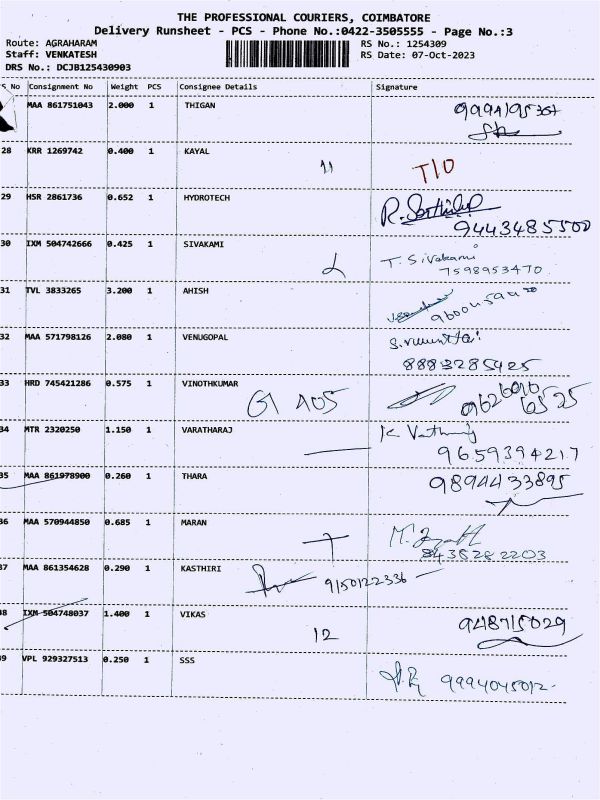 THE PROFESSIONAL COURIERS, COIMBATORE
Delivery Runsheet - PCS - Phone No.:0422-3505555 - Page No.:3
Route: AGRAHARAM RS No.: 1254309
Staff: VENKATESH RS Date: 07-Oct-2023
DRS No.: DCJB125430903
S No Consignment No Weight PCS Consignee Details Signature
MAA 861751043 2.000 1 THIGAN
28 KRR 1269742 0.400 1 KAYAL 11 T10
29 HSR 2861736 0.652 1 HYDROTECH
9443485500
30 IXM 504742666 0.425 1 SIVAKAMI T. Sivakami
7598953470
31 TVL 3833265 3.200 1 AHISH
32 MAA 571798126 2.080 1 VENUGOPAL
8883285425
33 HRD 745421286 0.575 1 VINOTHKUMAR G1 A05
34 MTR 2320250 1.150 1 VARATHARAJ
9659394217
35 MAA 861978900 0.260 1 THARA 9894433895
36 MAA 570944850 0.685 1 MARAN
8438282203
37 MAA 861354628 0.290 1 KASTHIRI 9150122336
38 IXM 504748037 1.400 1 VIKAS 12 948715029
39 VPL 929327513 0.250 1 SSS 9994045012-